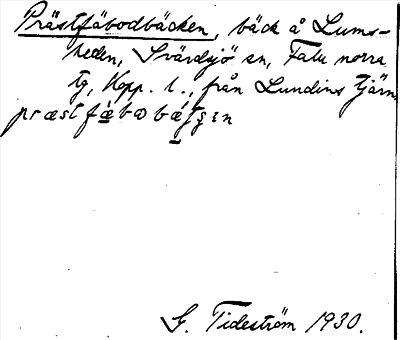 Prästfäbodbäcken, bäck å Lums-
heden, Svärdsjö sn, Falu norra
tg, Kopp. l., från Lundins tjärn.
præstfæbɷbætʂɛn
G. Tideström 1930.